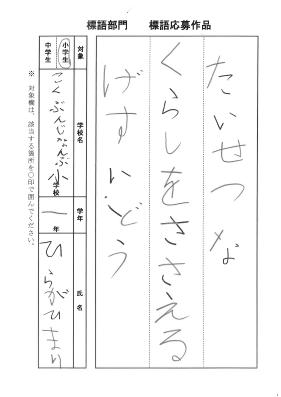 標語部門　標語応募作品
たいせつな
くらしをささえる
げすいどう
対象
小学生
中学生
学校名
こくぶんじなんぶ小
学校
学年
一年
氏名
ひらがひまり
※ 対象欄は、該当する箇所を○印で囲んでください。